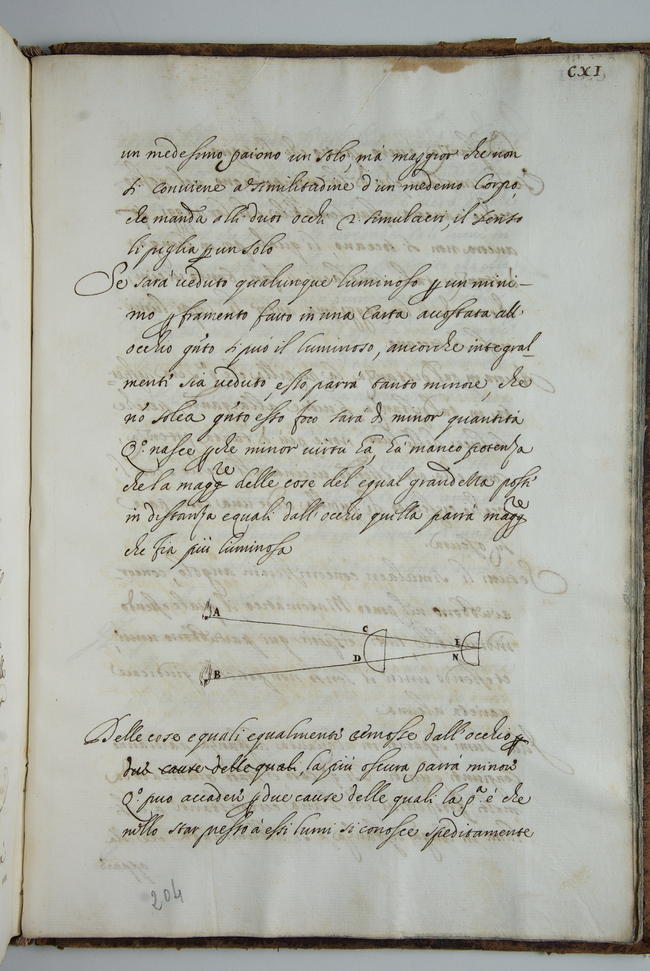 CXI
un medesimo paiono un solo, mà maggior che non
si conviene a similitudine d'un medemo Corpo,
che manda alli duoi occhi 2. simulacri, il senso
li piglia p un solo
Se sarà veduto qualunque luminoso p un mini-
mo fframento fatto in una Carta accostata all'
occhio qnto si può il luminoso, ancorche integral-
menti sia veduto, esso parrà tanto minore, che
nō solea qnto esso foco sarà di minor quantità
Qo nasce pche minor virtù hà, hà manco potenza
che la maggre delle cose del equal grandezza posti
in distanza equali dall'occhio quella parrà maggre
che fia più luminosa
A
C
E
D
N
B
Delle cose equali equalmenti remosse dall'occhio p
due cause delle quali, la più oscura parrà minori
Qo puo accaderi p due cause delle quali la pa é che
nello star presto à essi lumi si conosce speditamente
204